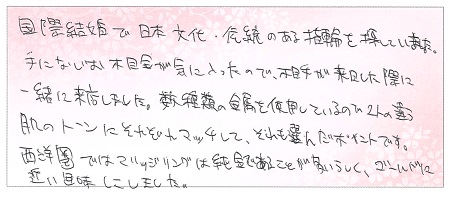 国際結婚で日本文化・伝統のある指輪を探していました。
手になじむ木目金が気に入ったので、相手が来日した際に
一緒に来店しました。数種類の金属を使用しているので2人の違う
肌のトーンにそれぞれマッチして、それも選んだポイントです。
西洋圏ではマリッジリングは純金であることが多いらしく、ゴールドに
近い色味にしました。